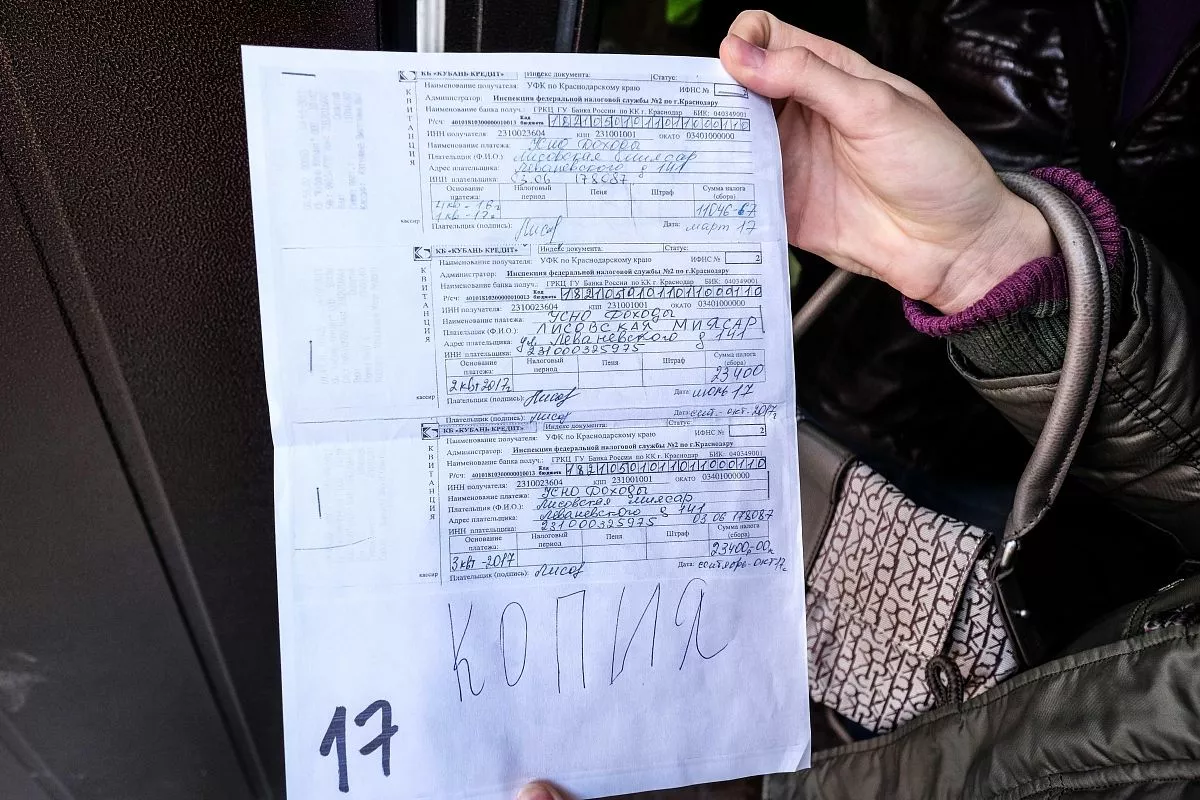 КБ «КУБАНЬ КРЕДИТ» Индекс документа: Статус:
Наименование получателя: УФК по Краснодарскому краю ИФНС №
Администратор: Инспекция федеральной налоговой службы №2 по г.Краснодару
Наименование банка получ.: ГРКЦ ГУ Банка России по КК г. Краснодар БИК: 040349001
Р/сч: 40101810300000010013 Код бюджета 18210501011011000110
ИНН получателя: 2310023604 КПП 231001001 ОКАТО 03401000000
Наименование платежа: УСНО Доходы
Плательщик (Ф.И.О.): Лисовская Миясар
Адрес плательщика: Леваневского 141
ИНН плательщика: 03.06 178087
Основание платежа: Налоговый период Пеня Штраф Сумма налога (сбора)
1 кв - 17г 11046-67
кассир Плательщик (подпись): Лисов Дата: март 17
КВИТАНЦИЯ
КБ «КУБАНЬ КРЕДИТ» Индекс документа: Статус:
Наименование получателя: УФК по Краснодарскому краю ИФНС № 2
Администратор: Инспекция федеральной налоговой службы №2 по г.Краснодару
Наименование банка получ.: ГРКЦ ГУ Банка России по КК г. Краснодар БИК: 040349001
Р/сч: 40101810300000010013 Код бюджета 18210501011011000110
ИНН получателя: 2310023604 КПП 231001001 ОКАТО 03401000000
Наименование платежа: УСНО Доходы
Плательщик (Ф.И.О.): ЛИСОВСКАЯ МИЯСАР
Адрес плательщика: ул. Леваневского 141
ИНН плательщика: 231000325975
Основание платежа: Налоговый период Пеня Штраф Сумма налога (сбора)
2 кв 2017г 23400
кассир Плательщик (подпись): Лисов Дата: июнь 17
КВИТАНЦИЯ
Плательщик (подпись): Лисов Дата: сент.-окт. 2017г
КБ «КУБАНЬ КРЕДИТ» Индекс документа: Статус:
Наименование получателя: УФК по Краснодарскому краю ИФНС № 2
Администратор: Инспекция федеральной налоговой службы №2 по г.Краснодару
Наименование банка получ.: ГРКЦ ГУ Банка России по КК г. Краснодар БИК: 040349001
Р/сч: 40101810300000010013 Код бюджета 18210501011011000110
ИНН получателя: 2310023604 КПП 231001001 ОКАТО 03401000000
Наименование платежа: УСНО Доходы
Плательщик (Ф.И.О.): Лисовская Миясар
Адрес плательщика: Леваневского 141
ИНН плательщика: 231000325975 03 06 178087
Основание платежа: Налоговый период Пеня Штраф Сумма налога (сбора)
3 кв - 2017 23400=00
кассир Плательщик (подпись): Лисов Дата: сентябрь-окт 17г
КВИТАНЦИЯ
КОПИЯ
17